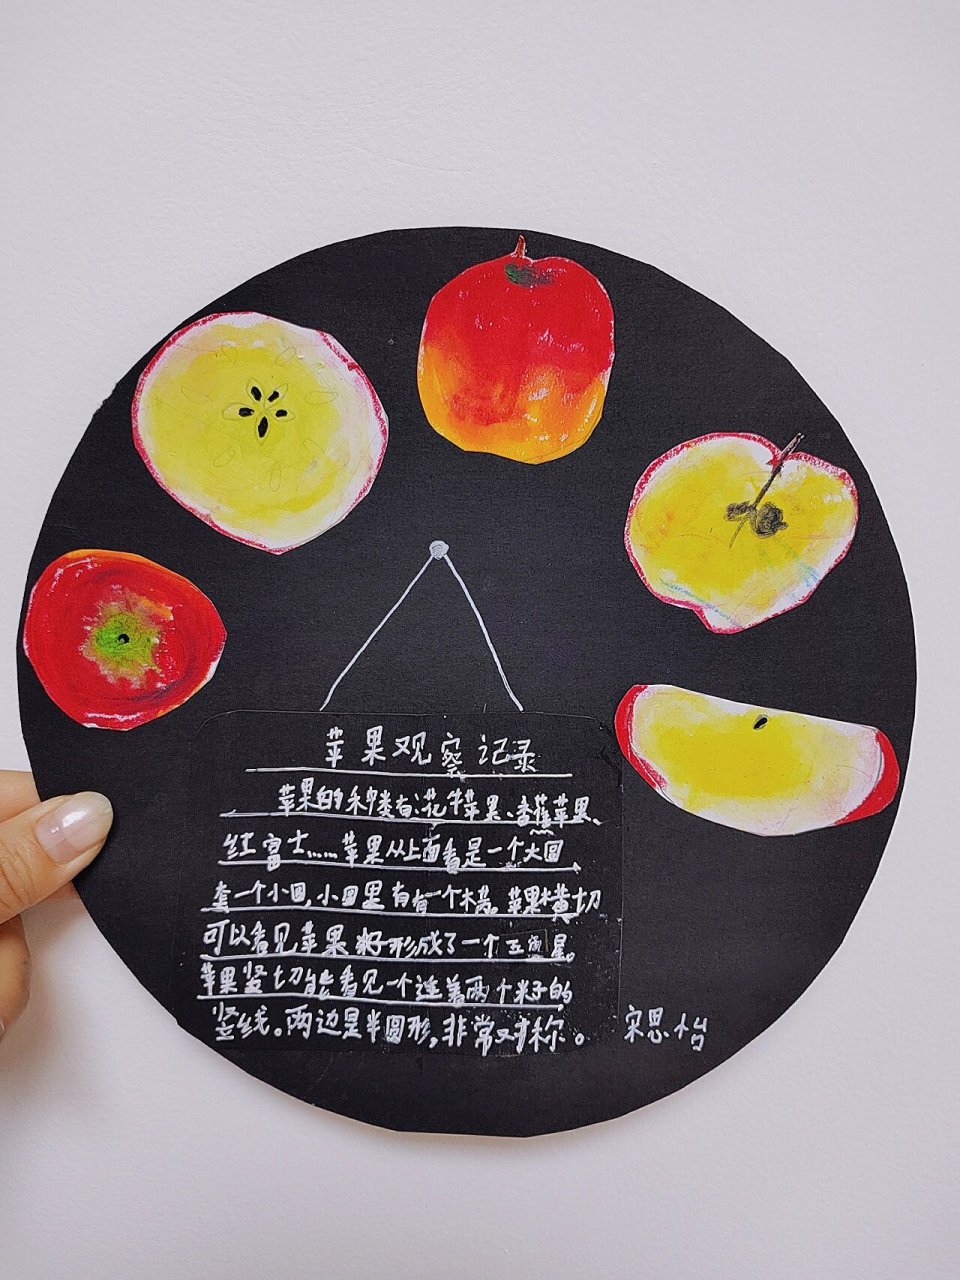 苹果观察记录
苹果的种类有:花牛苹果、香蕉苹果、
红富士……苹果从上面看是一个大圆
套一个小圆,小圆里有有一个梗。苹果横切
可以看见苹果籽形成了一个五角星。
苹果竖切能看见一个连着两个籽的
竖线。两边是半圆形,非常对称。
宋思怡